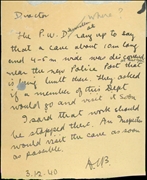 Director
The P.W.D. rang up to say
that a cave about 10m long
and 4-5 m wide was discovered
near the new Police Post that
is being built there. They asked
if a member of this Dept
would go and visit it soon
I said that work should
be stopped there. An Inspector
would visit the cave as soon
as possible.
3.12.40